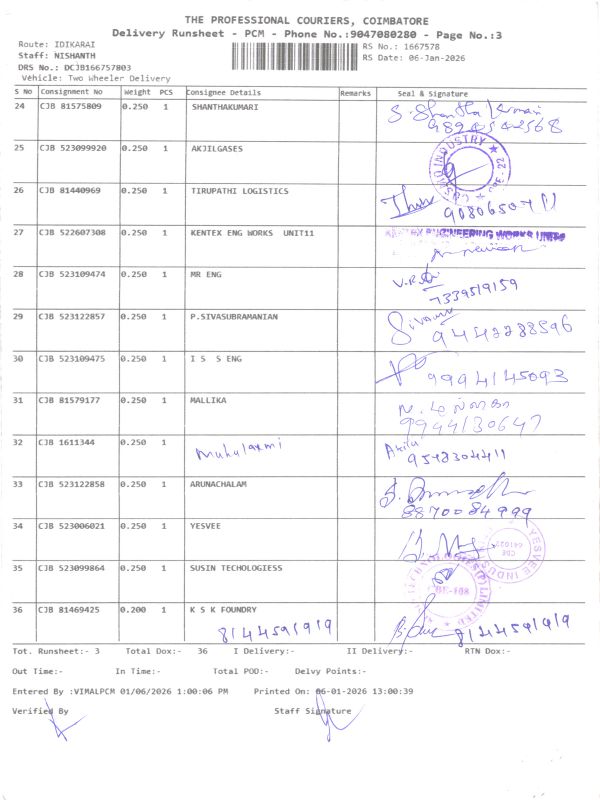 THE PROFESSIONAL COURIERS, COIMBATORE
Delivery Runsheet - PCM - Phone No.:9047080280 - Page No.:3
Route: IDIKARAI
Staff: NISHANTH
DRS No.: DCJB166757803
Vehicle: Two Wheeler Delivery
RS No.: 1667578
RS Date: 06-Jan-2026
S No Consignment No Weight PCS Consignee Details Remarks Seal & Signature
24 CJB 81575809 0.250 1 SHANTHAKUMARI
9894542568
25 CJB 523099920 0.250 1 AKJILGASES
INDUSTRY
26 CJB 81440969 0.250 1 TIRUPATHI LOGISTICS
27 CJB 522607308 0.250 1 KENTEX ENG WORKS UNIT11
KENTEX ENGINEERING WORKS
28 CJB 523109474 0.250 1 MR ENG
7339519159
29 CJB 523122857 0.250 1 P.SIVASUBRAMANIAN
9442288596
30 CJB 523109475 0.250 1 I S S ENG
9994145093
31 CJB 81579177 0.250 1 MALLIKA
9944130647
32 CJB 1611344 0.250 1 Mahalaxmi
9578304411
33 CJB 523122858 0.250 1 ARUNACHALAM
8870084999
34 CJB 523006021 0.250 1 YESVEE
YESVEE INDUS
35 CJB 523099864 0.250 1 SUSIN TECHOLOGIESS
LIMITED
36 CJB 81469425 0.200 1 K S K FOUNDRY
8144591919 8144591919
Tot. Runsheet:- 3 Total Dox:- 36 I Delivery:- II Delivery:- RTN Dox:-
Out Time:- In Time:- Total POD:- Delvy Points:-
Entered By :VIMALPCM 01/06/2026 1:00:06 PM Printed On: 06-01-2026 13:00:39
Verified By Staff Signature